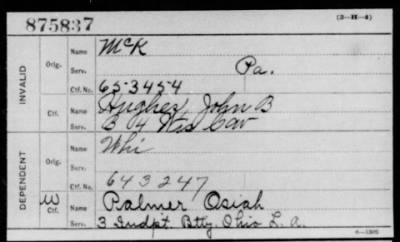 875837
(3-H-4)
INVALID
Orig.
Name McK
Serv. Pa.
Ctf. No. 653454
Ctf.
Name Hughes, John B
Serv. B 4 Wis Cav
DEPENDENT
Orig.
Name Whi
Serv.
Ctf. No. 643247
W
Ctf.
Name Palmer Osiah
Serv. 3 Indpt. Btty. Ohio L. a.